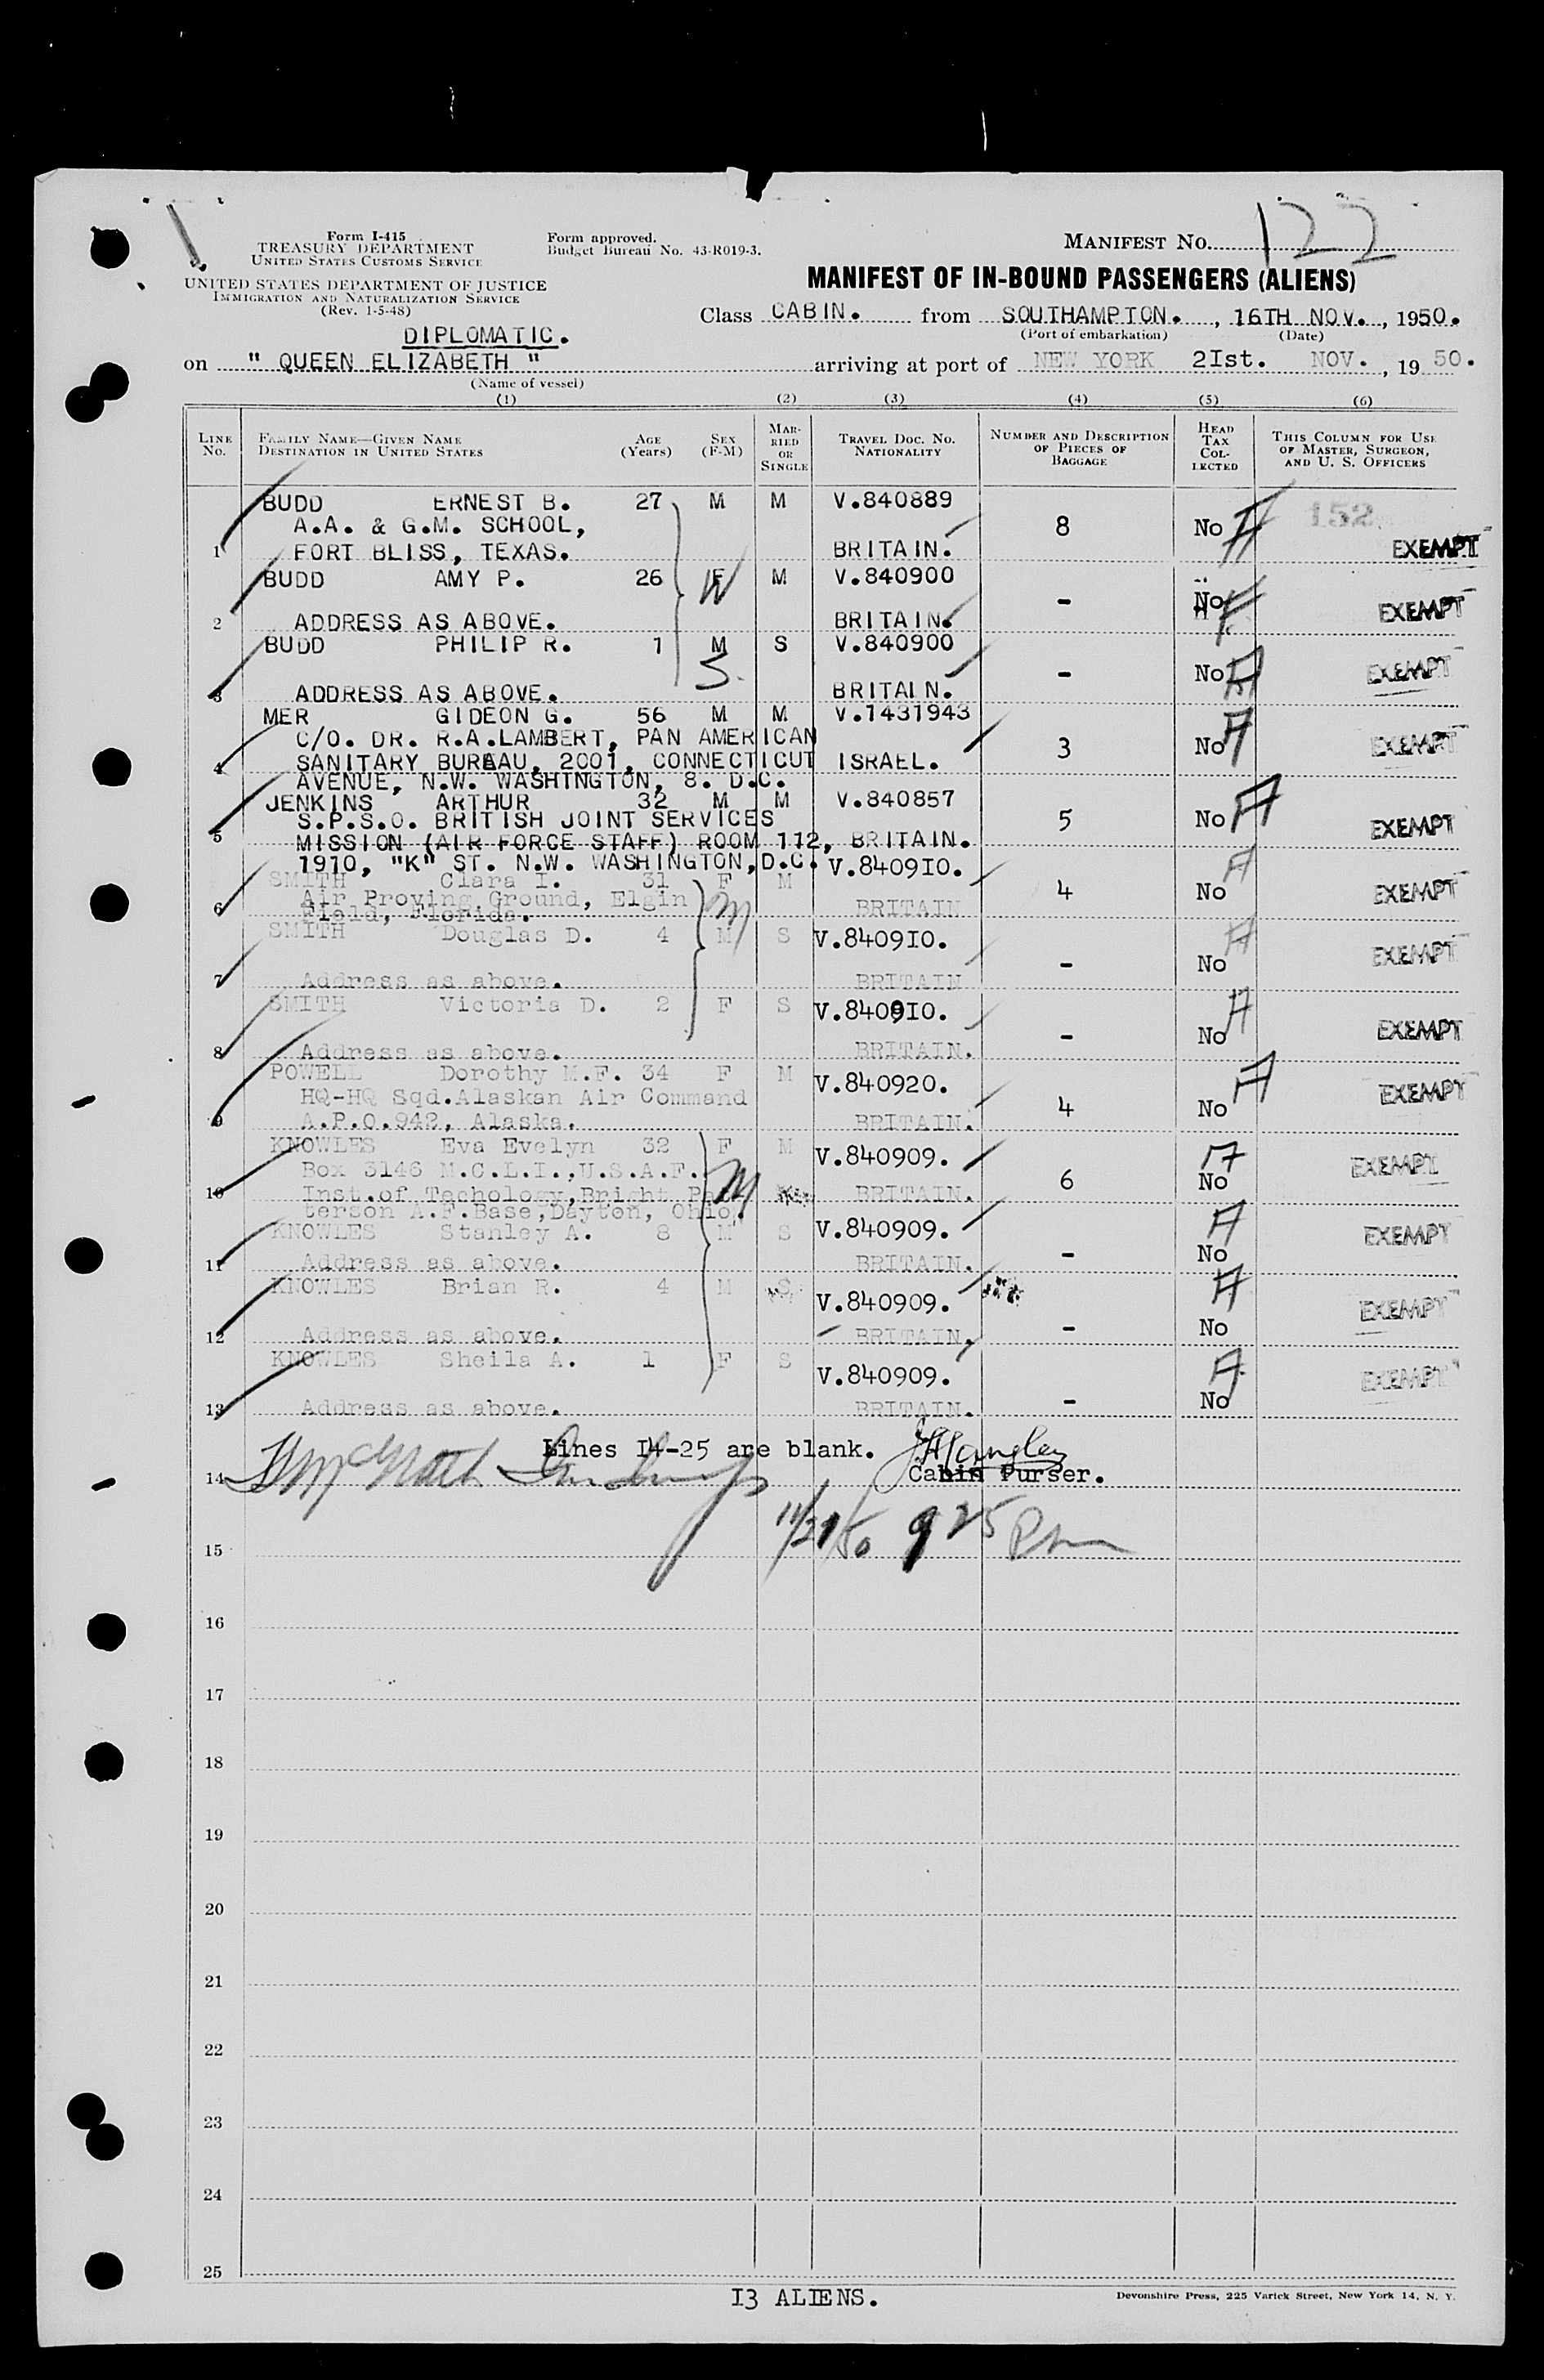 Form I-415
TREASURY DEPARTMENT
UNITED STATES CUSTOMS SERVICE
UNITED STATES DEPARTMENT OF JUSTICE
IMMIGRATION AND NATURALIZATION SERVICE
(Rev. 1-5-48)
Form approved.
Budget Bureau No. 43-R019-3.
MANIFEST NO. 122
MANIFEST OF IN-BOUND PASSENGERS (ALIENS)
Class CABIN. from SOUTHAMPTON. , 16TH NOV. , 1950.
(Port of embarkation) (Date)
DIPLOMATIC.
on " QUEEN ELIZABETH " arriving at port of NEW YORK 2Ist. NOV. , 19 50.
(Name of vessel)
(1) (2) (3) (4) (5) (6)
LINE No. FAMILY NAME—GIVEN NAME DESTINATION IN UNITED STATES AGE (Years) SEX (F-M) MARRIED OR SINGLE TRAVEL DOC. NO. NATIONALITY NUMBER AND DESCRIPTION OF PIECES OF BAGGAGE HEAD TAX COLLECTED THIS COLUMN FOR USE OF MASTER, SURGEON, AND U. S. OFFICERS
BUDD ERNEST B. 27 M M V.840889
A.A. & G.M. SCHOOL, 8 No 152
1 FORT BLISS, TEXAS. BRITAIN. EXEMPT
BUDD AMY P. 26 F M V.840900
- No
2 ADDRESS AS ABOVE. BRITAIN. EXEMPT
BUDD PHILIP R. 1 M S V.840900
S.
- No EXEMPT
3 ADDRESS AS ABOVE. BRITAIN.
MER GIDEON G. 56 M M V.1431943
C/O. DR. R.A.LAMBERT, PAN AMERICAN
4 SANITARY BUREAU, 2001, CONNECTICUT ISRAEL. 3 No EXEMPT
AVENUE, N.W. WASHINGTON, 8. D.C.
JENKINS ARTHUR 32 M M V.840857
S.P.S.O. BRITISH JOINT SERVICES 5 No EXEMPT
5 MISSION (AIR FORCE STAFF) ROOM 112, BRITAIN.
1910, "K" ST. N.W. WASHINGTON,D.C.
SMITH Clara I. 31 F M V.8409I0.
Air Proving Ground, Elgin 4 No EXEMPT
6 Field, Florida. BRITAIN
SMITH Douglas D. 4 M S V.8409I0.
- No EXEMPT
7 Address as above. BRITAIN
SMITH Victoria D. 2 F S V.8409I0.
- No EXEMPT
8 Address as above. BRITAIN.
POWELL Dorothy M.F. 34 F M V.840920.
HQ-HQ Sqd.Alaskan Air Command 4 No EXEMPT
9 A.P.O.942, Alaska. BRITAIN.
KNOWLES Eva Evelyn 32 F M V.840909.
Box 3146 M.C.L.I.,U.S.A.F. 6 No EXEMPT
10 Inst.of Techology,Bright Pat- BRITAIN.
terson A.F.Base,Dayton, Ohio.
KNOWLES Stanley A. 8 M S V.840909.
11 Address as above. BRITAIN. - No EXEMPT
KNOWLES Brian R. 4 M S V.840909.
12 Address as above. BRITAIN. - No EXEMPT
KNOWLES Sheila A. 1 F S V.840909.
13 Address as above. BRITAIN. - No EXEMPT
Lines I4-25 are blank.
14 Cabin Purser.
11/21/50 9 25 Pm
15
16
17
18
19
20
21
22
23
24
25
I3 ALIENS.
Devonshire Press, 225 Varick Street, New York 14, N. Y.